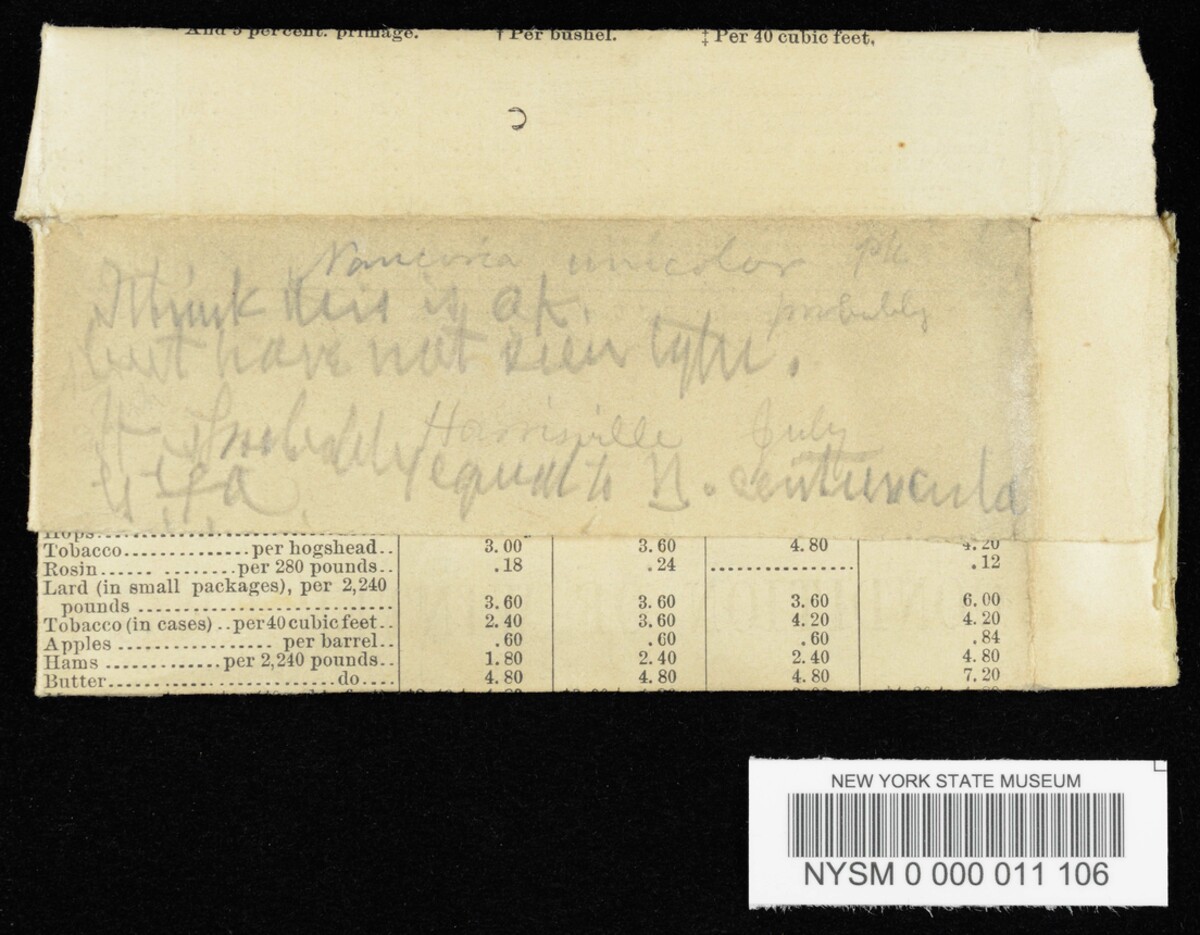 And 5 per cent. primage. † Per bushel. ‡ Per 40 cubic feet.
Naucoria unicolor Pk.
I think this is OK. probably
but have not seen type.
Harrisville July
It is probably equal to N. centuncula
Hops
Tobacco..............per hogshead.. 3.00 3.60 4.80 4.20
Rosin...... .........per 280 pounds.. .18 .24 ................ .12
Lard (in small packages), per 2,240
pounds ............................ 3.60 3.60 3.60 6.00
Tobacco (in cases) ..per 40 cubic feet.. 2.40 3.60 4.20 4.20
Apples .................. per barrel.. .60 .60 .60 .84
Hams ............per 2,240 pounds.. 1.80 2.40 2.40 4.80
Butter............................do.... 4.80 4.80 4.80 7.20
NEW YORK STATE MUSEUM
NYSM 0 000 011 106